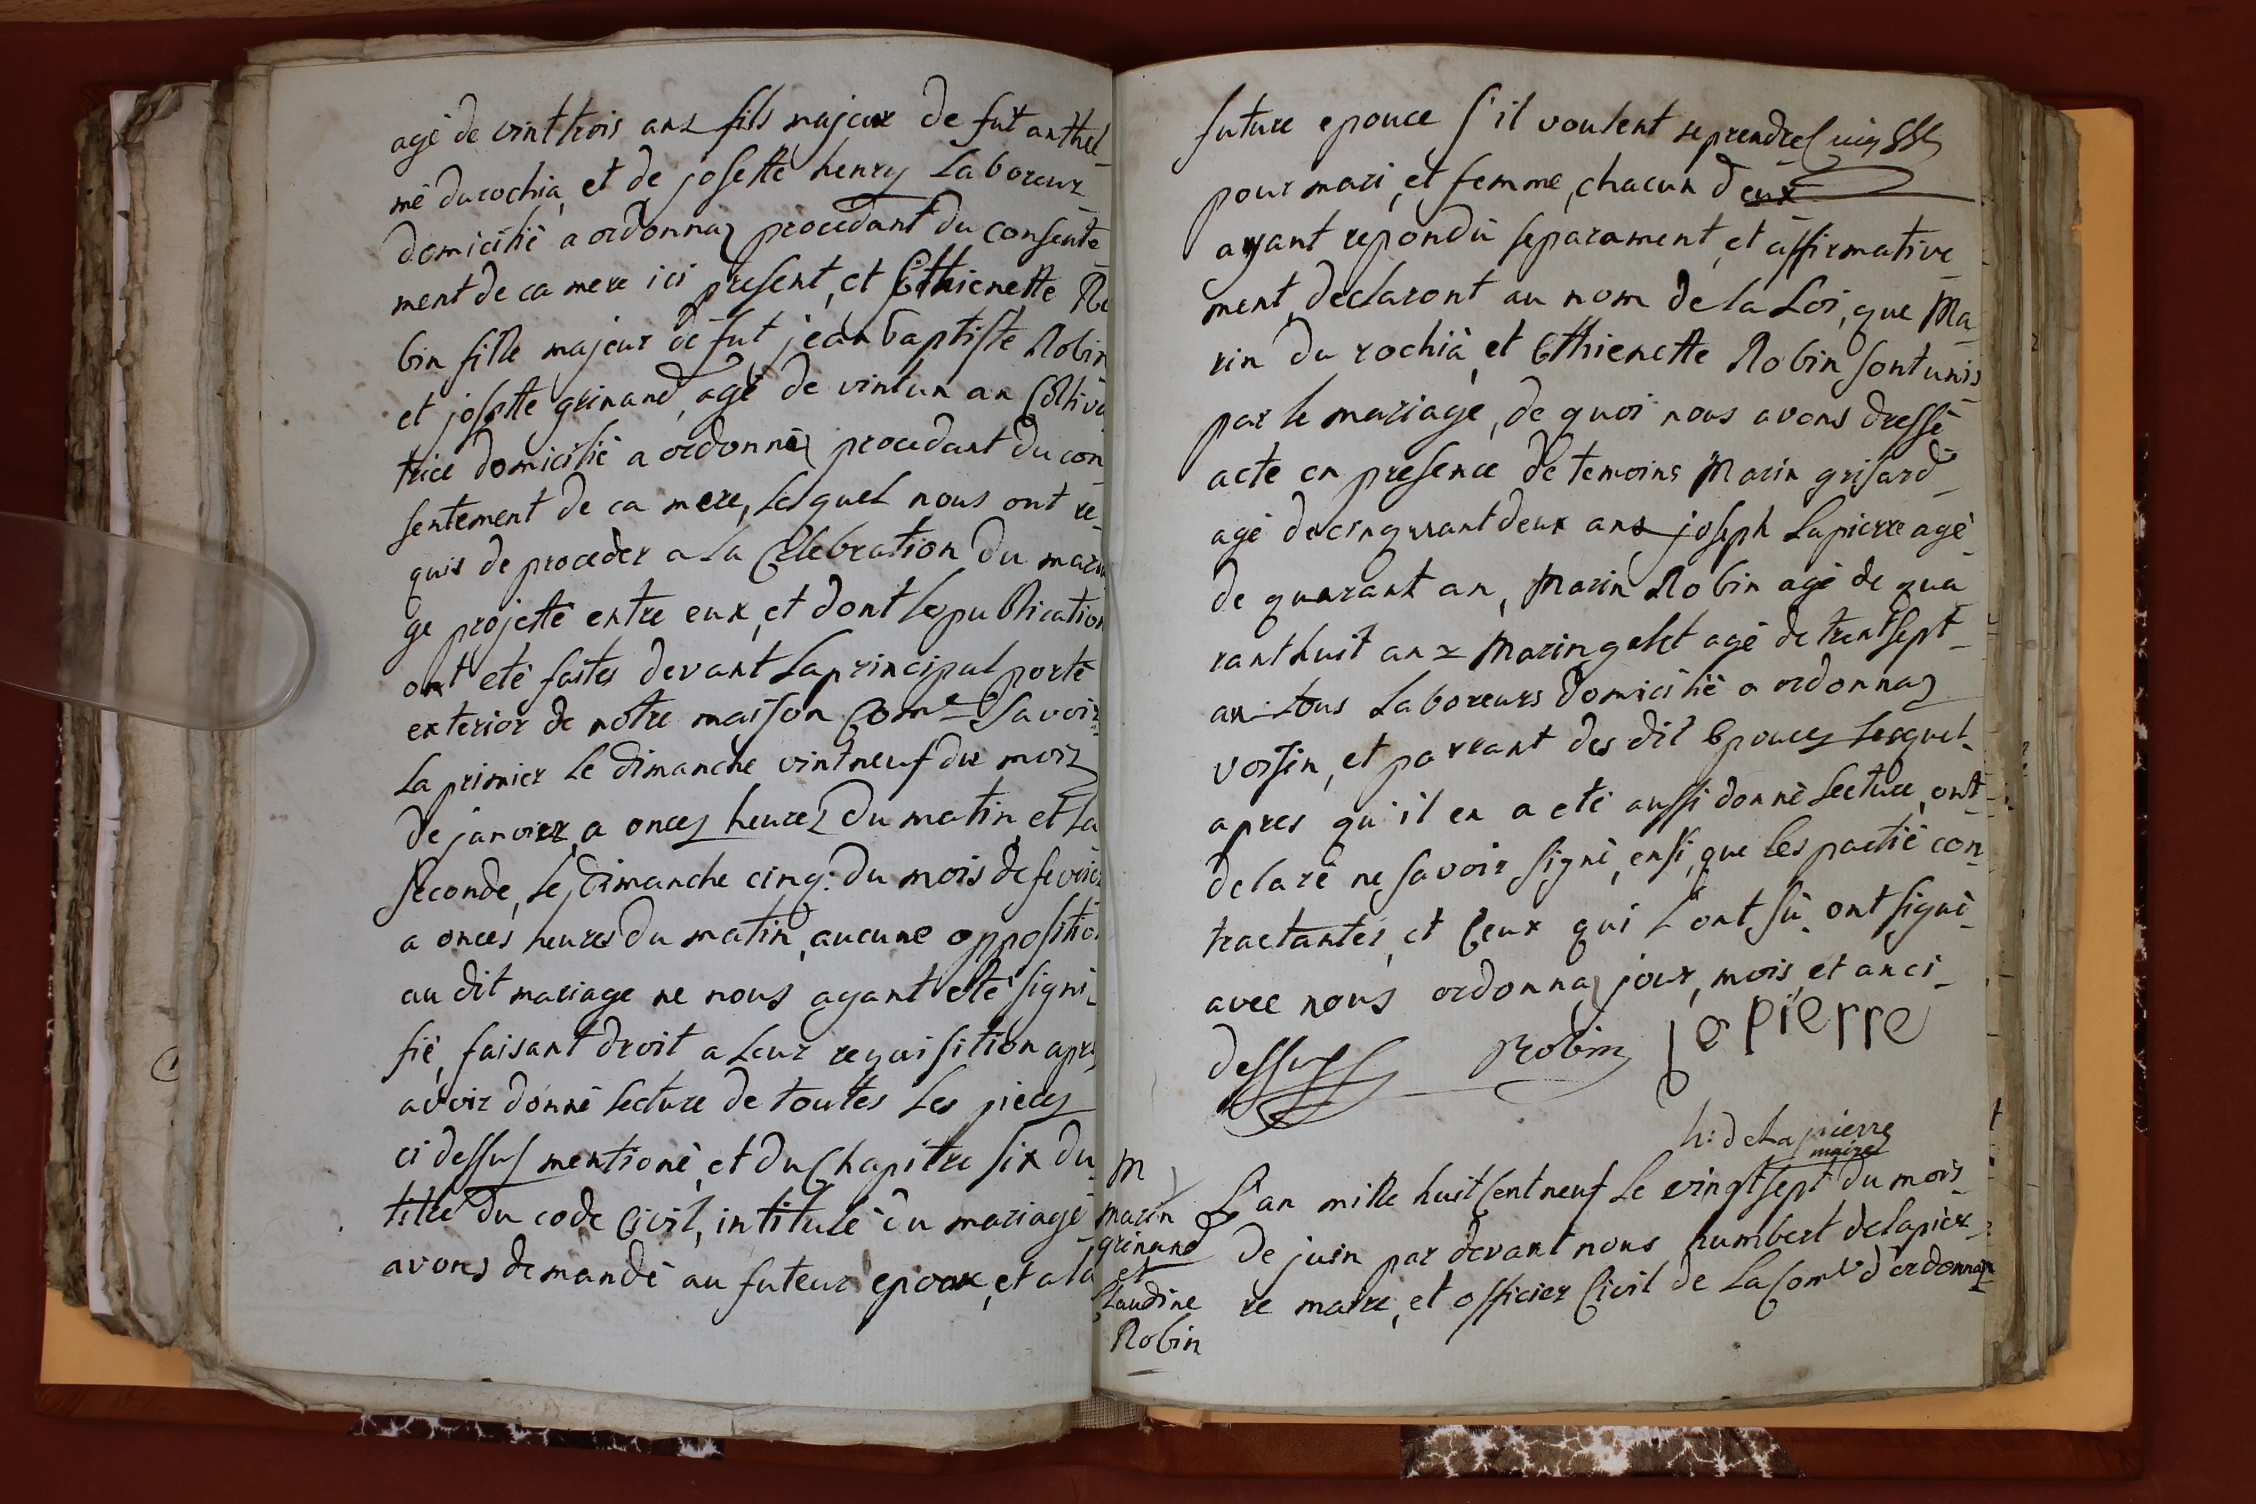 agé de vinttrois ans fils majeur de fut anthel-
mé durochia, et de josette henry Laboreur
domicilié a ordonnaz procedant du consente-
ment de ca mere ici present, et Ethienette Ro
bin fille majeur de fut jean baptiste Robin
et josette grinand, agé de vintun an Coltiva
trice domicilié a ordonnéz procedant du con
sentement de ca mere, Lesquel nous ont re-
quis de proceder a La Célébration du maria
ge projetté entre eux, et dont les publication
ont eté faites devant La principal porte
exterior de notre maison Com.e Savoir
La primier Le dimanche vintneuf du mois
de janvier, a onces heures du matin, et La
seconde, Le dimanche cinq. du mois de fevrier
a onces heures du matin, aucune oppositio
au dit mariage ne nous ayant eté signi-
fié, faisant droit a Leur requisition apres
avoir donné Lecture de toutes Les pieces
ci dessus mentioné, et du Chapitre six du
titre du code Civil, intitulé du mariage
avons demandé au futeur epoux, et a la
future epouce s'il voulent se prendre
pour mari, et femme, chacun d eux
ayant repondu separament, et affirmative-
ment, declaront au nom de la Loi, que Ma-
rin du rochia, et Ethienette Robin sont unis
par le mariage, de quoi nous avons dressé
acte en presence de temoins Marin grisard
agé de cinquant deux ans joseph Lapierre agé
de quarant an, Marin Robin agé de qua
rant huit ans Marin gelet agé de trent sept
an tous Laboreurs domicilié a ordonnaz
voisin, et parrant des dit Epouces Lesquel
apres qu'il en a eté aussi donné Lecture, ont
delaré ne savoir signé, ensi, que les partie con
tractantes, et Ceux qui L'ont sù ont signé
avec nous ordonnaz jour, mois, et an ci-
dessus Robin lapierre
h: delapierre
maire
M
marin
grinand
et
Claudine
Robin
L'an mille huit Cent neuf Le vingtsept du mois
de juin par devant nous humbert delapier-
re maire, et officier Civil de La Com.e d'ordonnaz